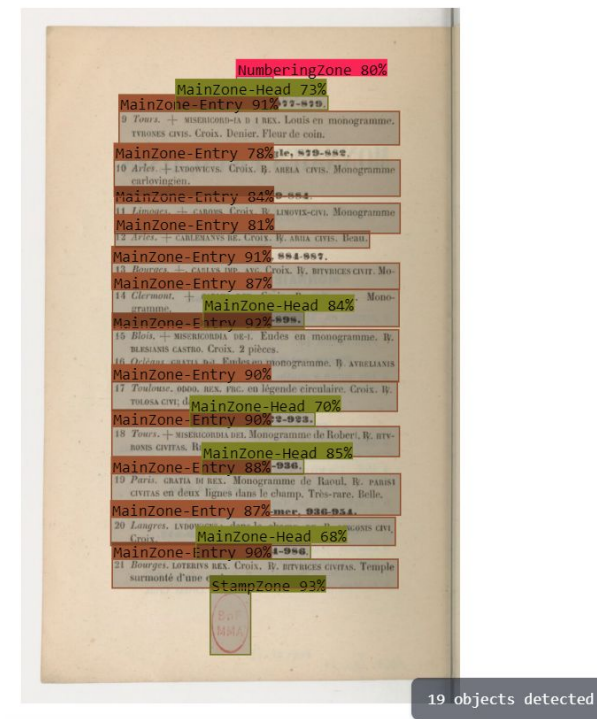 NumberingZone 80%
MainZone-Head 73%
MainZone-Entry 91% 877-879.
9 Tours. + MISERICORD-IA D I REX. Louis en monogramme.
TVRONES CIVIS. Croix. Denier. Fleur de coin.
MainZone-Entry 78% gle, 879-882.
10 Arles. + LVDOWICVS. Croix. ℟. ARELA CIVIS. Monogramme
carlovingien.
MainZone-Entry 84% 9-884.
11 Limoges. + CARDES. Croix. ℟. LIMOVIX-CIVI. Monogramme
MainZone-Entry 81%
12 Arles. + CARLEMANVS RE. Croix. ℟. ARIIA CIVIS. Beau.
MainZone-Entry 91% . 884-887.
13 Bourges. + CARLVS IMP. AVG. Croix. ℟. BITVRICES CIVIT. Mo-
MainZone-Entry 87%
14 Clermont. + Mono-
gramme.
MainZone-Head 84%
MainZone-Entry 92% -898.
15 Blois. + MISERICORDIA DE-I. Eudes en monogramme. ℟.
BLESIANIS CASTRO. Croix. 2 pièces.
16 Orléans. GRATIA D-I. Eudes en monogramme. ℟. AVRELIANIS
MainZone-Entry 90%
17 Toulouse. ODDO. REX. FRC. en légende circulaire. Croix. ℟.
TOLOSA CIVI;
MainZone-Head 70%
MainZone-Entry 90% 22-923.
18 Tours. + MISERICORDIA DEI. Monogramme de Robert. ℟. TVR-
RONIS CIVITAS.
MainZone-Head 85%
MainZone-Entry 88% -936.
19 Paris. GRATIA DI REX. Monogramme de Raoul. ℟. PARISI
CIVITAS en deux lignes dans le champ. Très-rare. Belle.
MainZone-Entry 87% -mer, 936-954.
20 Langres. CIVI,
Croix.
MainZone-Head 68%
MainZone-Entry 90% 4-986.
21 Bourges. LOTERIVS REX. Croix. ℟. BITVRICES CIVITAS. Temple
surmonté d'une
StampZone 93%
MMA
19 objects detected